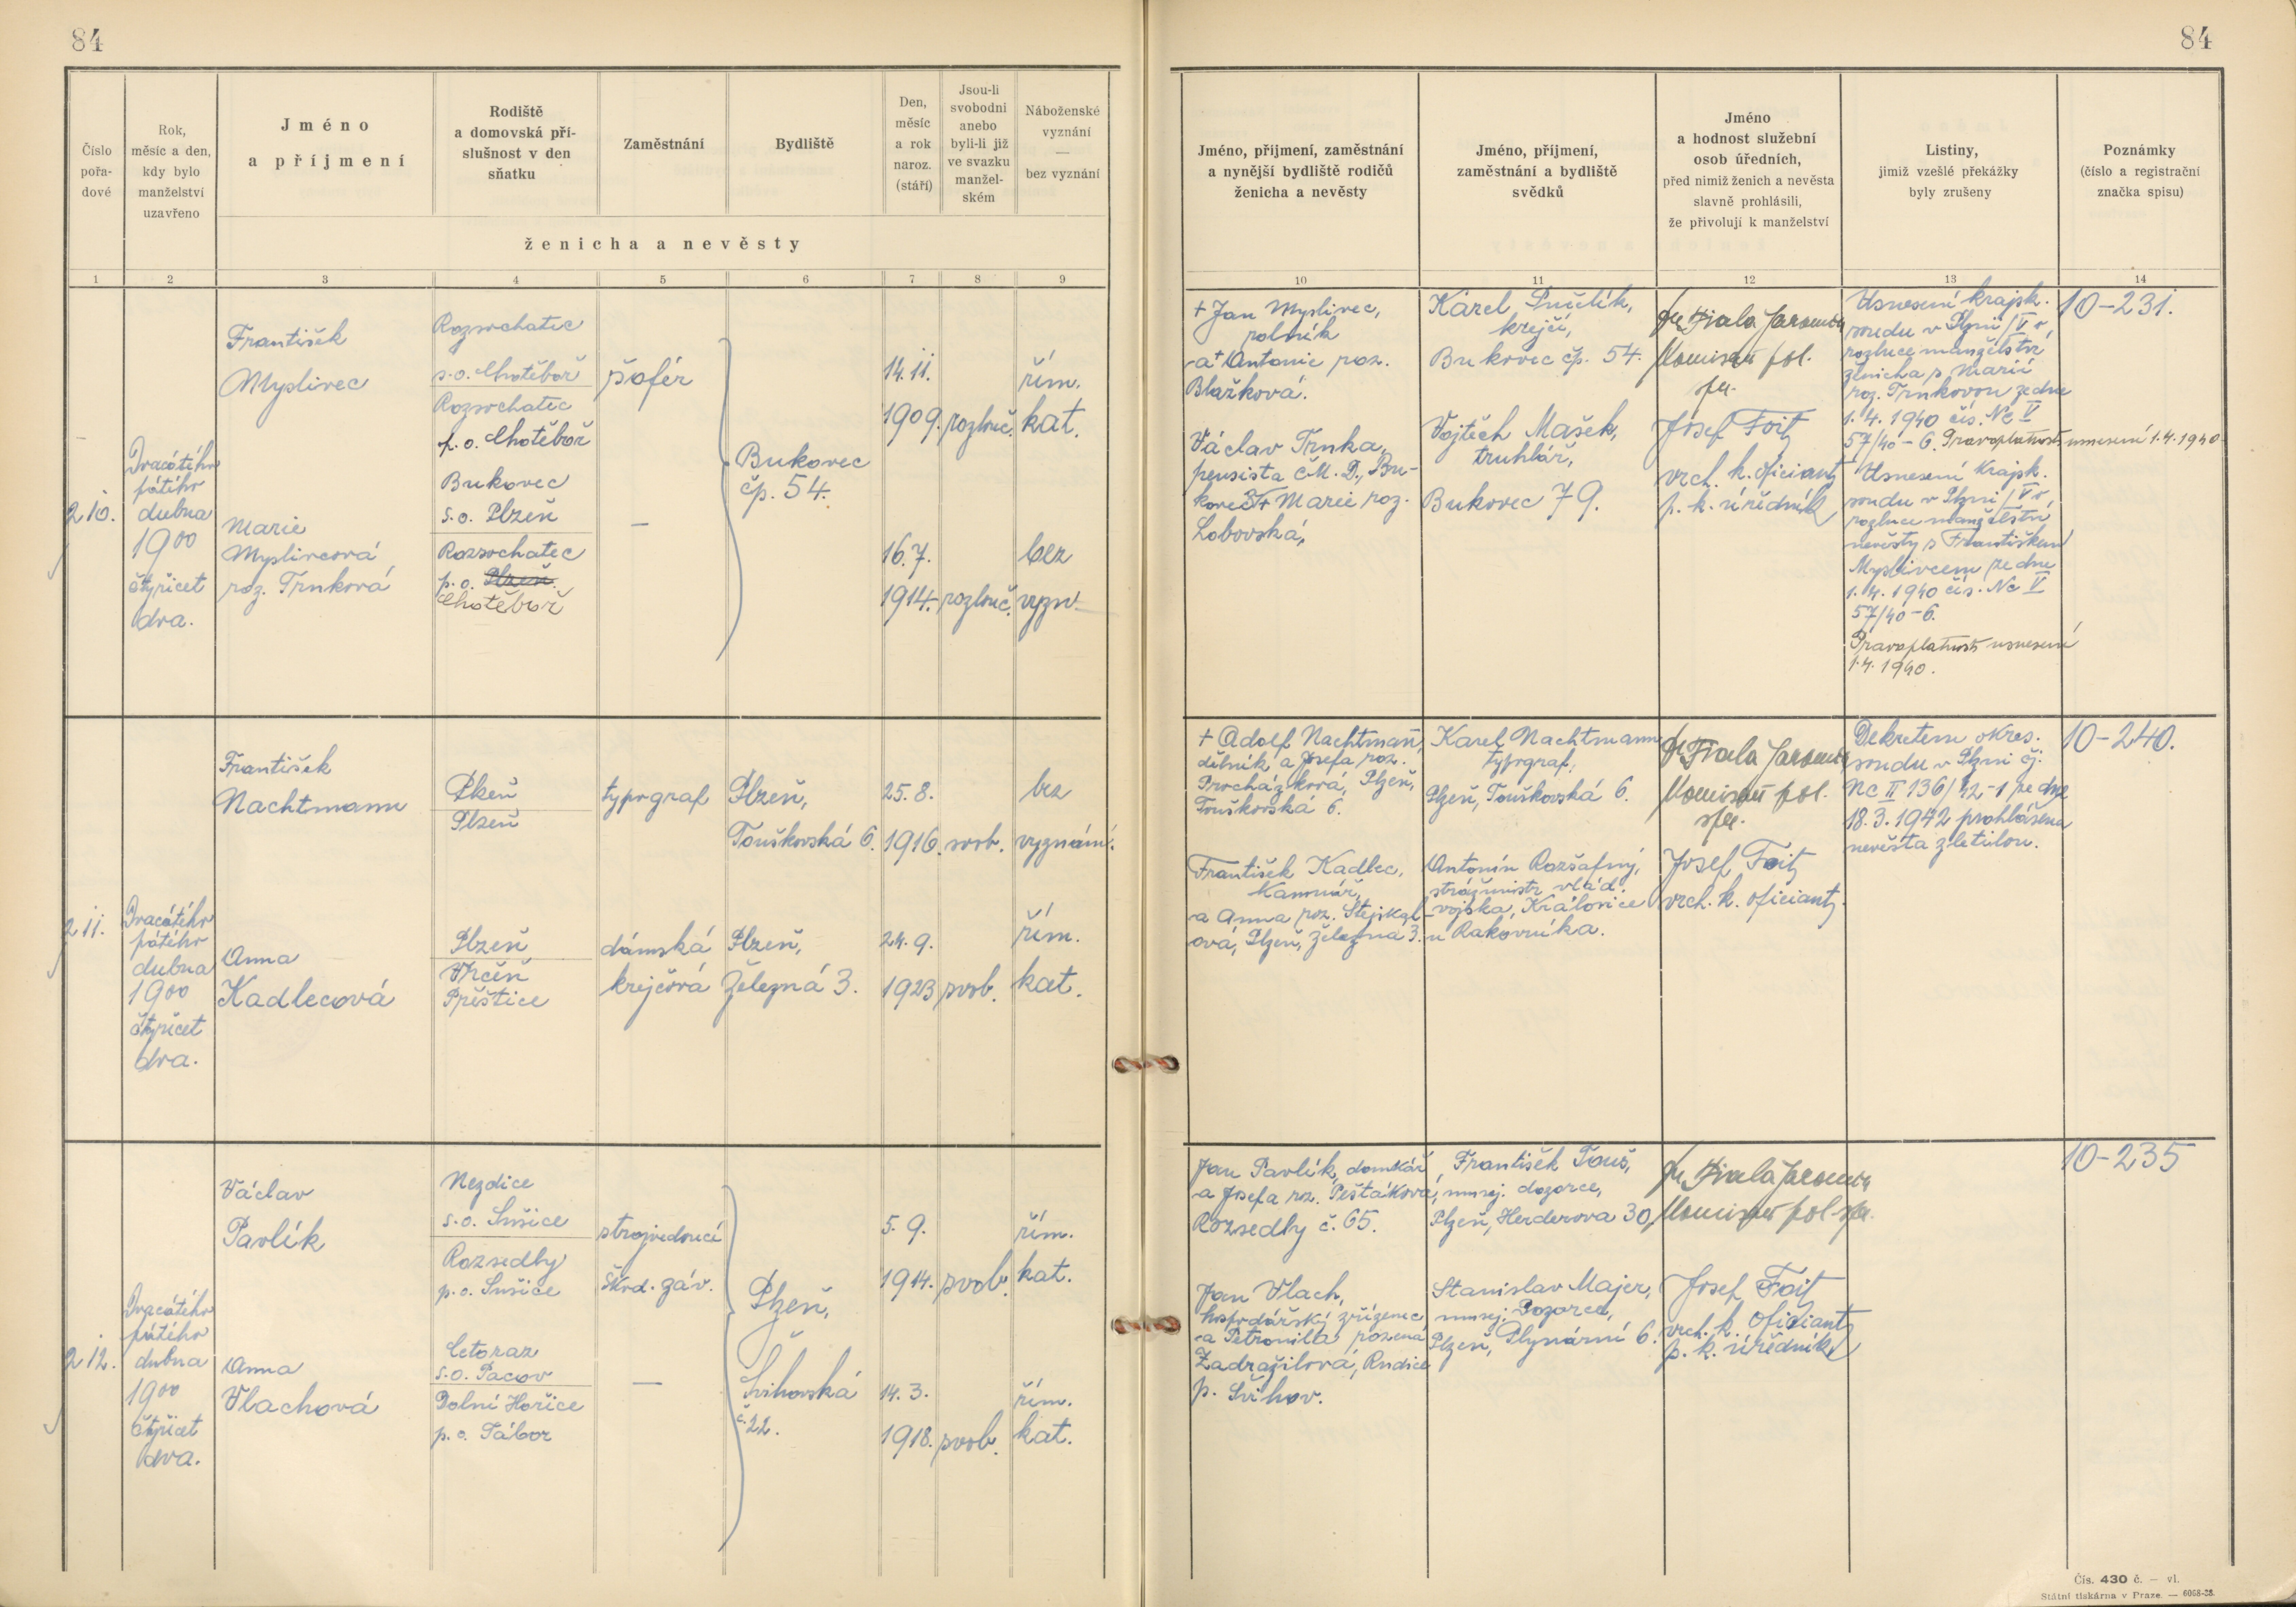 84
84
Číslo
pořa-
dové
Rok,
měsíc a den,
kdy bylo
manželství
uzavřeno
Jméno
a příjmení
Rodiště
a domovská pří-
slušnost v den
sňatku
Zaměstnání
Bydliště
Den,
měsíc
a rok
naroz.
(stáří)
Jsou-li
svobodni
anebo
byli-li již
ve svazku
manžel-
ském
Náboženské
vyznání
—
bez vyznání
ženicha a nevěsty
Jméno, příjmení, zaměstnání
a nynější bydliště rodičů
ženicha a nevěsty
Jméno, příjmení,
zaměstnání a bydliště
svědků
Jméno
a hodnost služební
osob úředních,
před nimiž ženich a nevěsta
slavně prohlásili,
že přivolují k manželství
Listiny,
jimiž vzešlé překážky
byly zrušeny
Poznámky
(číslo a registrační
značka spisu)
1 2 3 4 5 6 7 8 9 10 11 12 13 14
210.
Dvacátého
pátého
dubna
1900
čtyřicet
dva.
František
Myslivec
Rozsochatec
s.o. Chotěboř
Rozsochatec
p.o. Chotěboř
šofér
Bukovec
čp. 54.
14. 11.
1909.
rozluč.
řím.
kat.
Marie
Myslivcová
roz. Trnková
Bukovec
s.o. Plzeň
Rozsochatec
p.o. Plzeň
Chotěboř
—
16. 7.
1914.
rozluč.
bez
vyzn.
+ Jan Myslivec,
rolník
a + Antonie roz.
Blažková.
Václav Trnka,
pensista Č.M.D., Bu-
kovec + Marie roz.
Lobovská,
Karel
krejčí,
Bukovec čp. 54.
Vojtěch Mašek,
truhlář,
Bukovec 79.
Dr Fiala Jaromír
Komisař pol.
spr.
Josef Foit
vrch. k. oficiant
p. k. úředník
Usnesení krajsk.
soudu v Plzni / V o
rozluce manželství
ženicha s Marií
roz. Trnkovou ze dne
1. 4. 1940 čís. Nc V
57/40-6. Pravoplatnost usnesení 1.4.1940.
Usnesení Krajsk.
soudu v Plzni / V o
rozluce manželství
nevěsty s Františkem
Myslivcem ze dne
1. 4. 1940 čís. Nc V
57/40-6.
Pravoplatnost usnesení
1.4. 1940.
10-231.
211.
Dvacátého
pátého
dubna
1900
čtyřicet
dva.
František
Nachtmann
Plzeň
Plzeň
typograf
Plzeň,
Touškovská 6.
25. 8.
1916.
svob.
bez
vyznání.
Anna
Kadlecová
Plzeň
Vrčeň
Přeštice
dámská
krejčová
Plzeň,
Železná 3.
24. 9.
1923
svob.
řím.
kat.
+ Adolf Nachtman,
dělník a Josefa roz.
Procházková, Plzeň,
Touškovská 6.
František Kadlec,
Kamnář,
a Anna roz. Stejskal-
ová, Plzeň, Železná 3.
Karel Nachtmann
typograf,
Plzeň, Touškovská 6.
Antonín Rozšafný,
strážmistr vlád.
vojska, Kralovice
u Rakovníka.
Dr Fiala Jaromír
Komisař pol.
spr.
Josef Foit
vrch. k. oficiant.
Dekretem okres.
soudu v Plzni čj.
Nc II 136/42-1 ze dne
18. 3. 1942 prohlášena
nevěsta zletilou.
10-240.
212.
Dvacátého
pátého
dubna
1900
čtyřicet
dva.
Václav
Pavlík
Nezdice
s.o. Sušice
Rozsedly
p.o. Sušice
strojvedoucí
Škod. záv.
Plzeň,
Švihovská
č. 22.
5. 9.
1914.
svob.
řím.
kat.
Anna
Vlachová
Cetoraz
s.o. Pacov
Dolní Hořice
p.o. Tábor
—
14. 3.
1918.
svob.
řím.
kat.
Jan Pavlík, domkář
a Josefa roz. Pešťáková,
Rozsedly č. 65.
Jan Vlach,
hospodářský zřízenec
a Petronila rozená
Zadražilová, Rudice
p. Švihov.
František Touš,
musej. dozorce,
Plzeň, Herderova 30,
Stanislav Majer,
musej. Dozorce,
Plzeň, Plynární 6.
Dr Fiala Jaromír
Komisař pol. spr.
Josef Foit
vrch. k. oficiant
p. k. úředník
10-235
Čís. 430 č. — vl.
Státní tiskárna v Praze. — 6068-38.